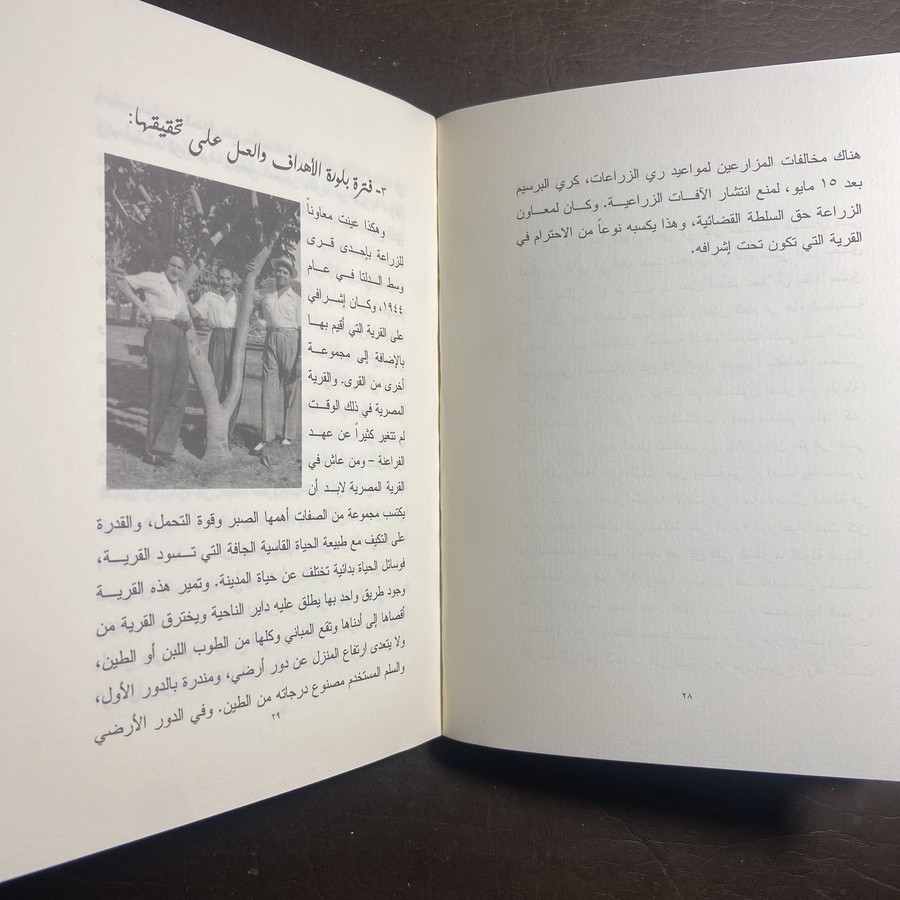 هناك مخالفات المزارعين لمواعيد ري الزراعات، كري البرسيم
بعد ١٥ مايو، لمنع انتشار الآفات الزراعيـة. وكـان لمعـاون
الزراعة حق السلطة القضائية، وهذا يكسبه نوعاً من الاحترام في
القرية التي تكون تحت إشرافه.
٢٨
٣- فترة بلورة الأهداف والعمل على تحقيقها:
وهكذا عينت معاوناً
للزراعة بإحدى قـرى
وسط الـدلتا فـي عـام
١٩٤٤، وكـان إشـرافي
على القرية التي أقيم بهـا
بالإضافة إلى مجموعـة
أخرى من القرى. والقرية
المصرية في ذلك الوقـت
لم تتغير كثيراً عن عهـد
الفراعنة – ومن عاش في
القرية المصرية لابـد أن
يكتسب مجموعة من الصفات أهمها الصبر وقوة التحمل، والقدرة
على التكيف مع طبيعة الحياة القاسية الجافة التي تـسود القريـة،
فوسائل الحياة بدائية تختلف عن حياة المدينة. وتميز هذه القريـة
وجود طريق واحد بها يطلق عليه داير الناحية ويخترق القرية من
أقصاها إلى أدناها وتقع المباني وكلها من الطوب اللبن أو الطين،
ولا يتعدى ارتفاع المنزل عن دور أرضي، ومندرة بالدور الأول،
والسلم المستخدم مصنوع درجاته من الطين. وفي الدور الأرضي
٢٩